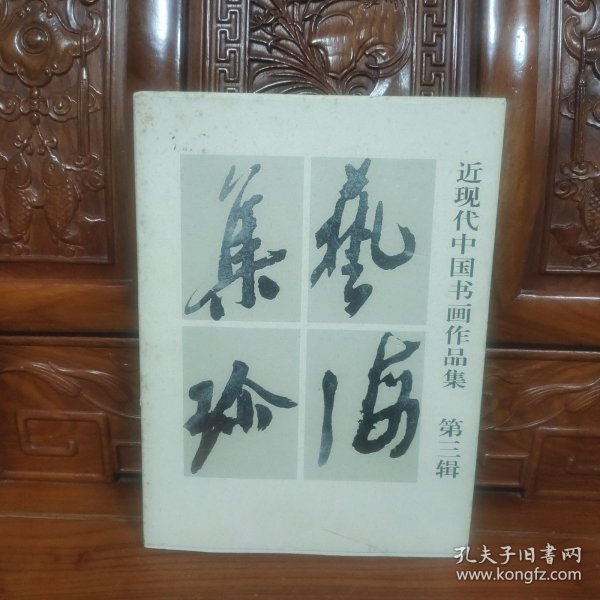 藝海
集珍
近现代中国书画作品集 第三辑
孔夫子旧书网
www.kongfz.com